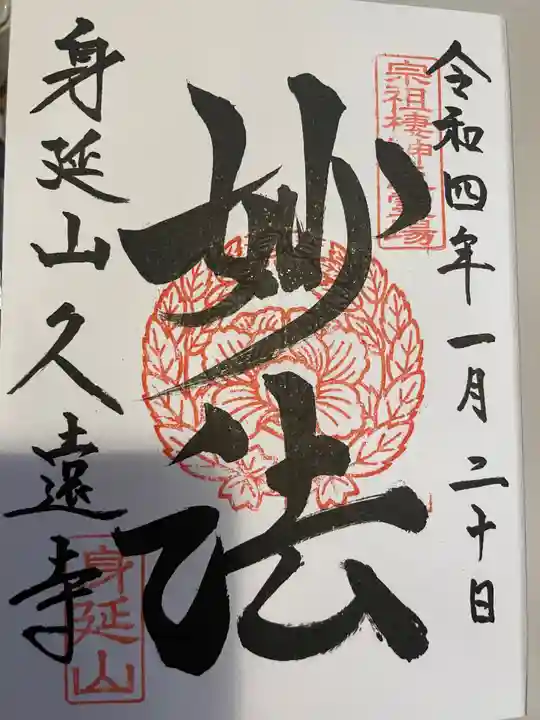 令和四年一月二十日
宗祖棲神之霊場
妙法
身延山久遠寺
身延山